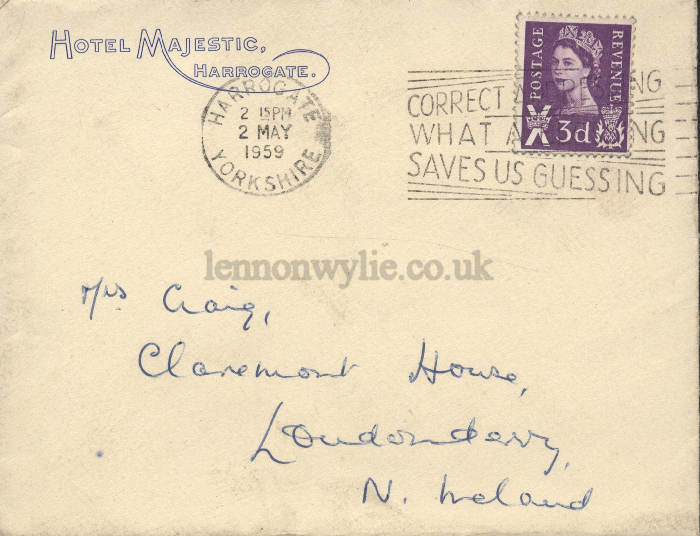 HOTEL MAJESTIC,
HARROGATE.
HARROGATE
2 15PM
2 MAY
1959
YORKSHIRE
POSTAGE
REVENUE
3d
CORRECT A NG
WHAT A NG
SAVES US GUESSING
lennonwylie.co.uk
Mrs Craig,
Claremont House,
Londonderry,
N. Ireland